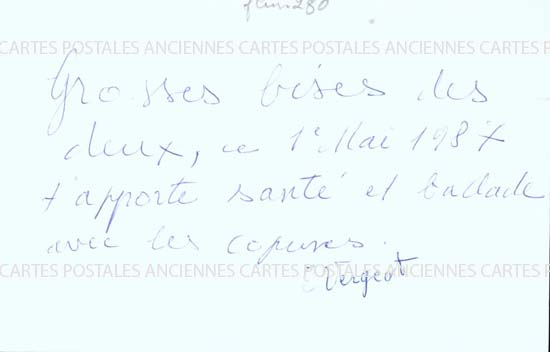 fleurs 280
CARTES POSTALES ANCIENNES CARTES POSTALES ANCIENNES CARTES POSTALES
Grosses bises des
deux, ce 1er Mai 1987
t'apporte santé et ballade
avec les copines.
CARTES POSTALES ANCIENNES CARTES POSTALES ANCIENNES CARTES POSTALES
Vergeot